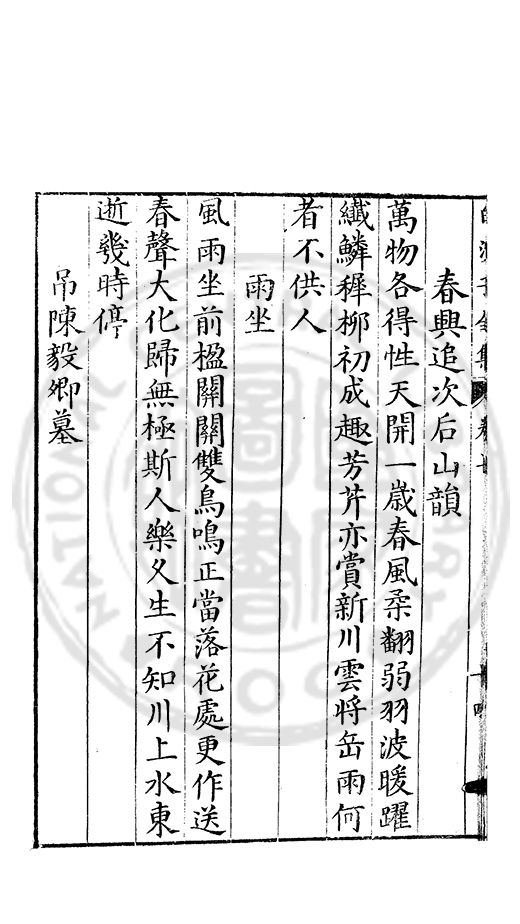 春興追次后山韻
萬物各得性天開一歲春風柔翻弱羽波暖躍
纖鱗穉柳初成趣芳芹亦賞新川雲將岳雨何
者不供人
雨坐
風雨坐前楹關關雙鳥鳴正當落花處更作送
春聲大化歸無極斯人樂久生不知川上水東
逝幾時停
吊陳毅卿墓